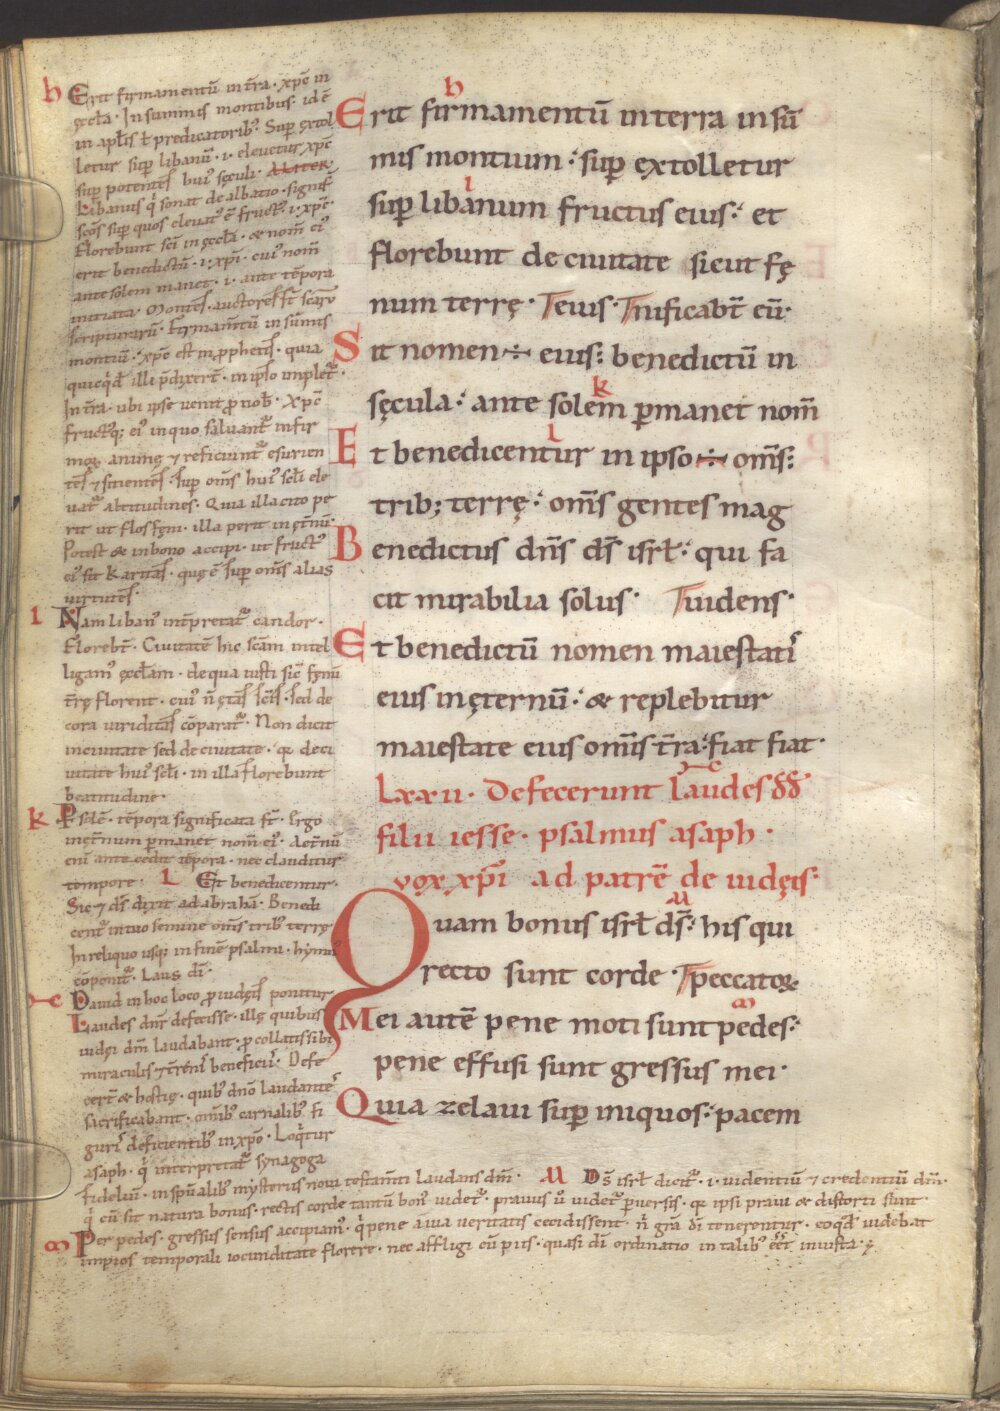 h Erit firmamentū in t̄ra · xp̄c in
ęccl̄a · In summis montibus · id ē
in apl̄is ł predicatorib; · Sup̄ extol
letur sup̄ libanū · i · eleuetur xp̄c
sup̄ potentes hui᾽ sęculi ·
Libanus q̇ sonat dealbatio · signif̄
sc̄os sup̄ quos eleuat᾽ ē fruct᾽ · i · xp̄c ·
Florebunt sc̄i in ęccl̄a · & nom̄ ei᾽
erit benedictū · i · xp̄i · cui᾽ nom̄
ante solem manet · i · ante tēpora
Montes · auctores
scripturarū · Firmam̄tū in sūmis
montiū · xp̄c est in pphetis · quia
quicq̇d illi p̄dixer̄t · in ipso implet᾽ ·
In t̄ra · ubi ipse uenit p nob̄ · xp̄c
fruct᾽q; ei᾽ in quo saluant᾽ infir
anime ⁊ reficiunt᾽ esurien
tes ⁊ sitientes · Sup̄ om̄s hui᾽ scl̄i ele
uat᾽ altitudines · Quia illa cito pe
rit ut flos fęni · illa perit in ęt̄nū ·
Potest & in bono accipi · ut fruct᾽
ei᾽ sit karitas · quę ē sup̄ om̄s alias
uirtutes ·
i Nam liban᾽ int̄pretat᾽ candor ·
Florebt̄ · Ciuitatē hic scām intel
ligam᾽ ęccl̄am · de qua iusti sic̄ fęnū
t̄rę florent · cui᾽ n̄
cora uiriditas cōparat᾽ · Non dicit
in ciuitate sed de ciuitate · q̇ de ci
uitate hui᾽ scl̄i · in illa florebunt
beatitudine ·
k P solē · tēpora significata st̄ · Ergo
inęt̄num p̄manet nom̄ ei᾽ · Aet̄nū
eni᾽ antecedit tēpora · nec clauditur
tempore · l Et benedicentur ·
Sic ⁊ ds̄ dixit ad abrahā · Benedi
cent᾽ in tuo semine om̄s trib᾽ terrę ·
In reliquo usq; in finē psalmi · hymn᾽
cōponit᾽ · Laus dī ·
Dauid in hoc loco p iudęis ponitur
Laudes dn̄i defecisse · illę quibus
iudęi dn̄m laudabant · p collatis sibi
miraculis ⁊ t̄reni᾽ beneficii᾽ · Defe
cer̄t & hostię · quib᾽ dn̄o laudantes
sacrificabant · omīb᾽ carnalib᾽ fi
guri᾽ deficientib᾽ in xp̄o · Loq̇tur
asaph · q̇ interpretat᾽ synagoga
fidelium · in spūalib᾽ mysteriis noui testam̄ti laudans dm̄ ·
h
Erit firmamentū in terra in sū
mis montium ·՚ sup̄ extolletur
i
sup̄ libanum fructus eius ·՚ et
florebunt de ciuitate sicut fę
num terrę · Teius · Tnificabt̄ eū ·
Sit nomen ÷ eius : benedictū in
k
sęcula ·՚ ante solem p̄manet nom̄
l
Et benedicentur in ipso ÷ om̄s :
trib; terrę ·՚ om̄s gentes mag
Benedictus dn̄s ds̄ isrl̄ ·՚ qui fa
cit mirabilia solus · Tuidens ·
Et benedictū nomen maiestati᾽
eius in ęternū ·՚ & replebitur
maiestate eius omīs t̄ra ·՚ fiat fiat ·
Lxxii · Defecerunt laudes dd̄
filii iesse · psalmus asaph ·
vox xp̄i ad patrē de iudęis ·
M
Quam bonus isrl̄ ds̄ ·՚ his qui
recto sunt corde · Tpeccatoꝝ
m
Mei autē pene moti sunt pedes ·՚
pene effusi sunt gressus mei ·
Quia zelaui sup̄ iniquos ·՚ pacem
M Ds̄ isrl̄ dicit᾽ · i · uidentiū ⁊ credentiū dm̄ ·
q̇ cū sit natura bonus · rectis corde tantū bon᾽ uidet᾽ · prauus ū uidet᾽ p̄uersis · q̇ ipsi praui & distorti sunt ·
m Per pedes · gressus sensus accipiam᾽ · q̇ pene a uia ueritatis cecidissent · n̄ gr̄a dī tenerentur · eo q̇d uidebat
impios temporali iocunditate florere · nec affligi cū piis · quasi dī ordinatio in talib᾽ eēt iniusta ·